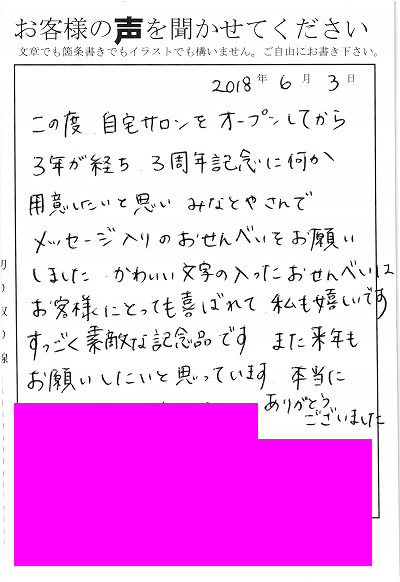 お客様の声を聞かせてください
文章でも箇条書きでもイラストでも構いません。ご自由にお書き下さい。
2018年 6月 3日
この度 自宅サロンをオープンしてから
3年が経ち 3周年記念に何か
用意したいと思い みなとやさんで
メッセージ入りのおせんべいをお願い
しました かわいい文字の入ったおせんべいは
お客様にとっても喜ばれて 私も嬉しいです
すっごく素敵な記念品です また来年も
お願いしたいと思っています 本当に
ありがとう
ございました
切り取り線